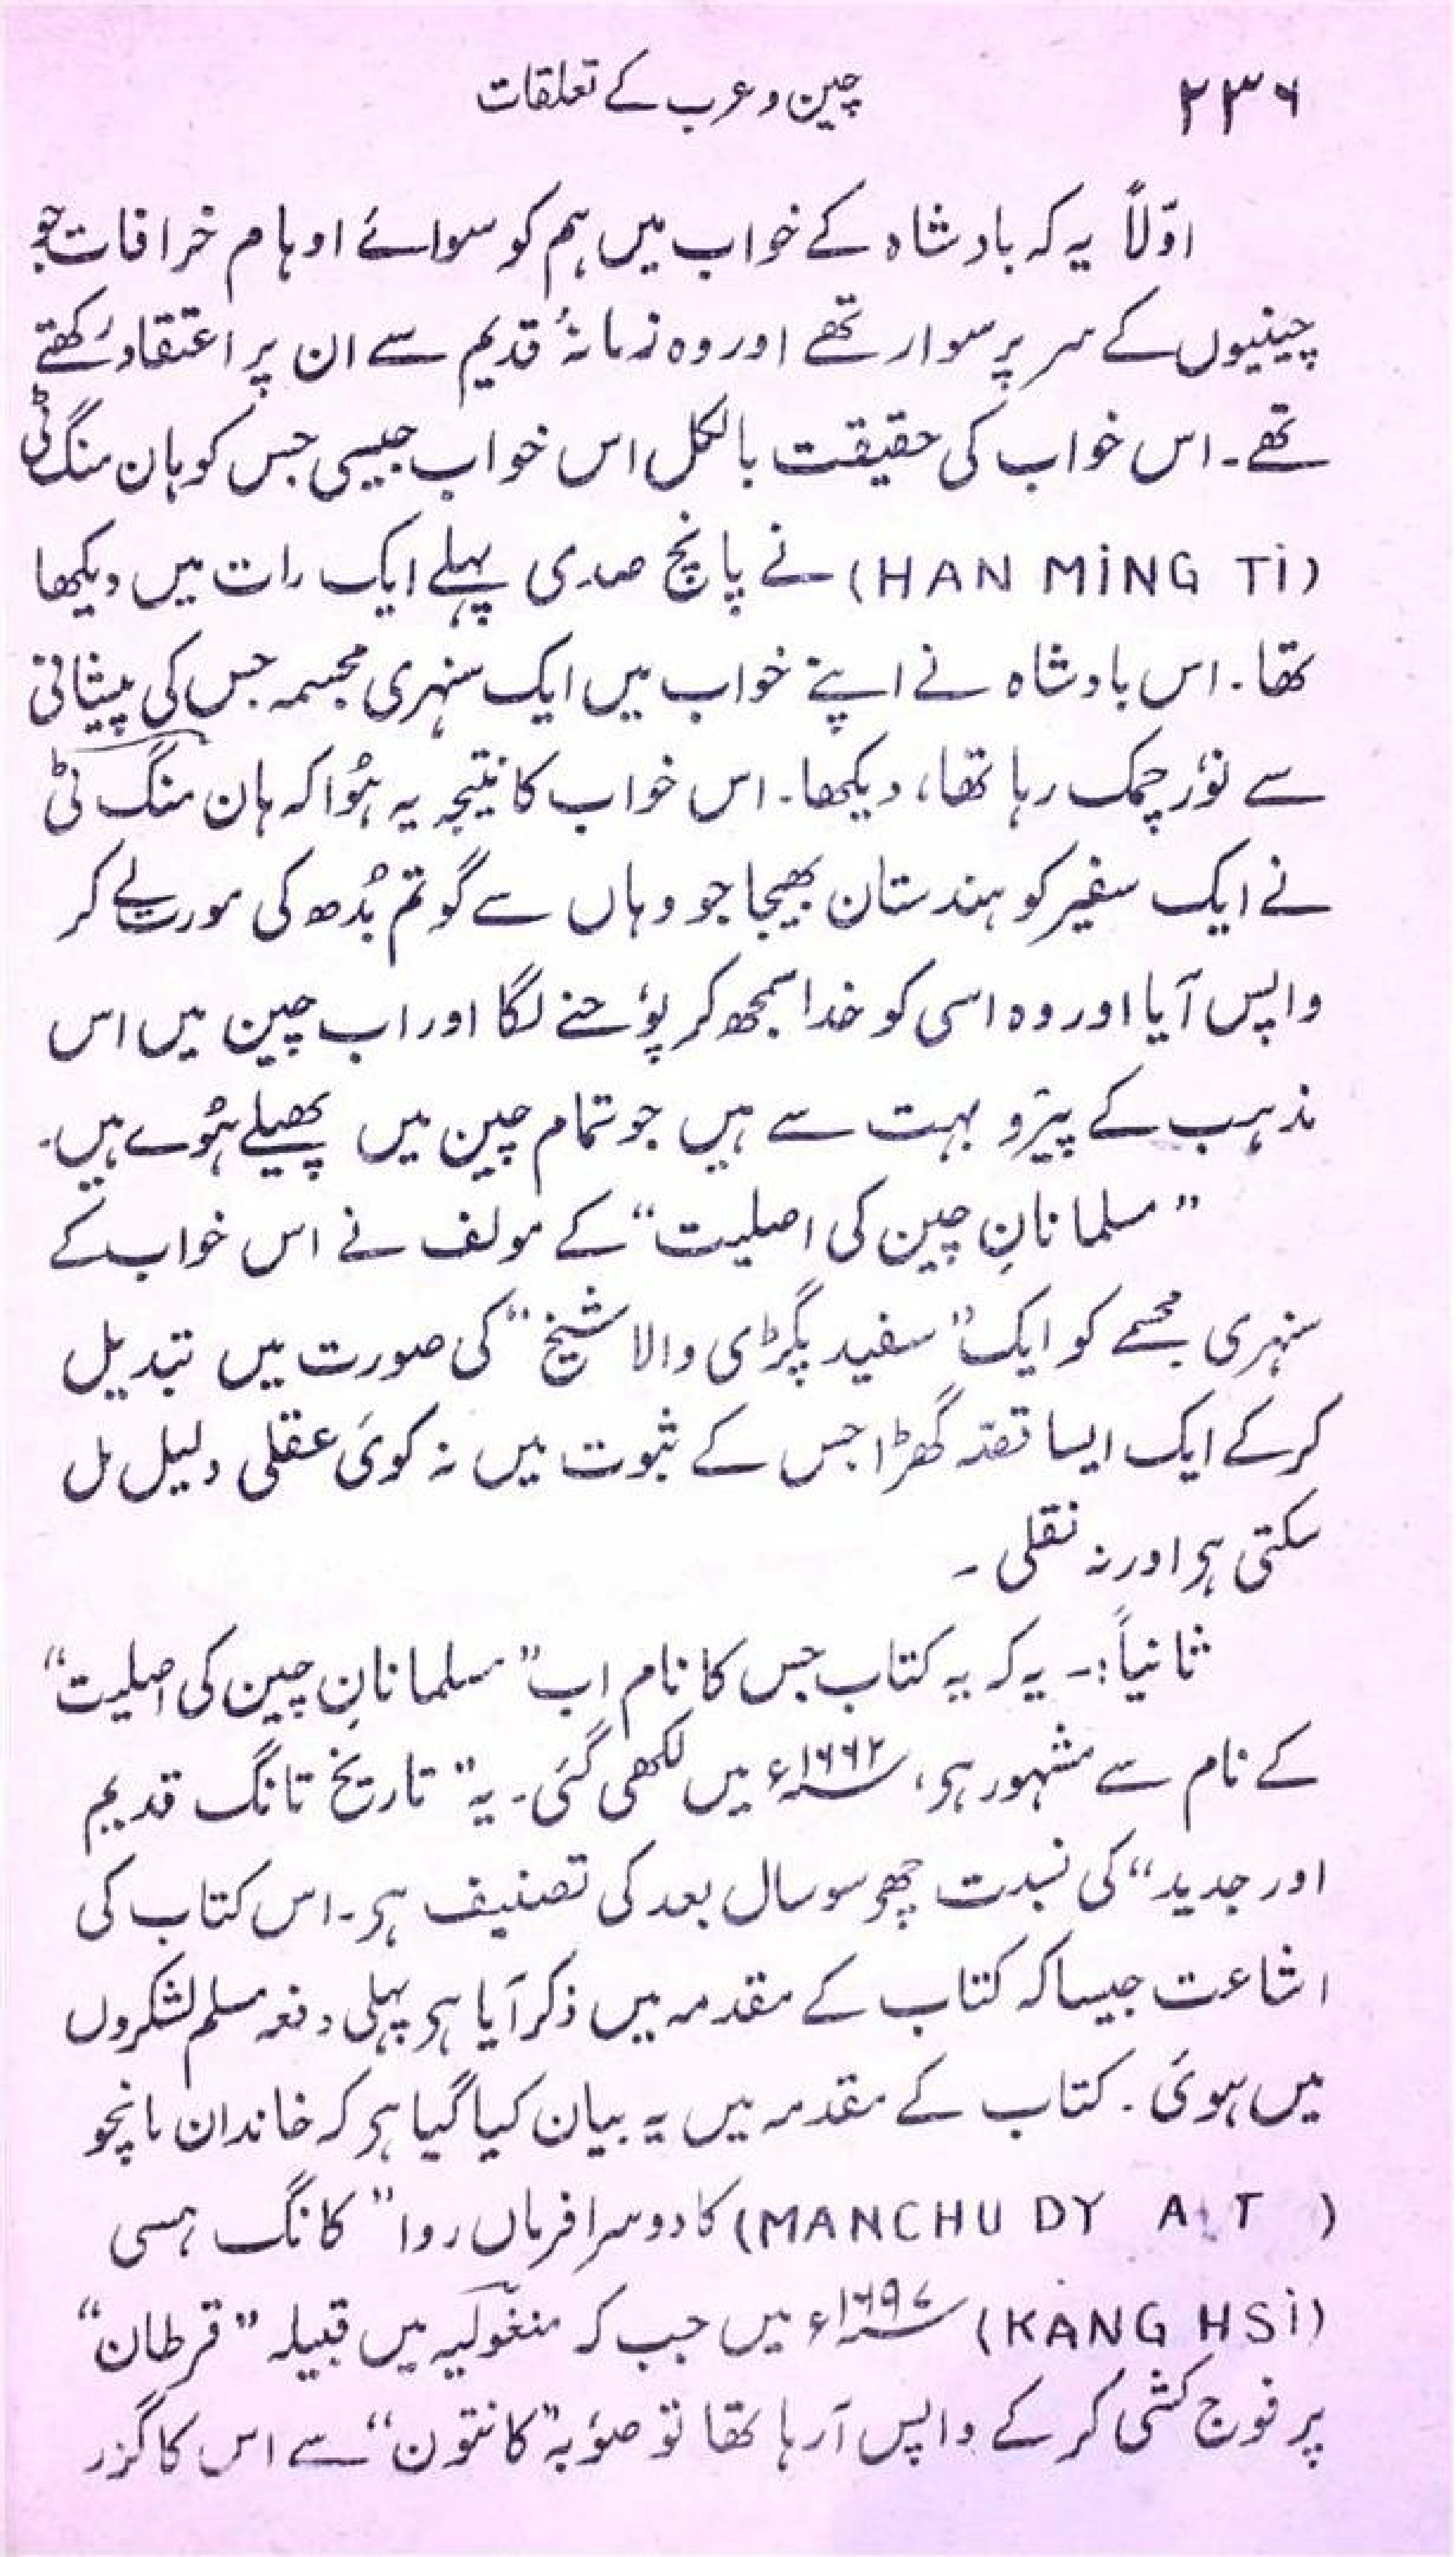 ۲۳۶ چین و عرب کے تعلقات
اوّلاً یہ کہ بادشاہ کے خواب میں ہم کو سوائے اوہام خرافات جو
چینیوں کے سر پر سوار تھے اور وہ زمانۂ قدیم سے ان پر اعتقاد رکھتے
تھے۔ اس خواب کی حقیقت بالکل اس خواب جیسی جس کو ہان منگ ٹی
(HAN MING TI) نے پانچ صدی پہلے ایک رات میں دیکھا
تھا۔ اس بادشاہ نے اپنے خواب میں ایک سنہری مجسمہ جس کی پیشانی
سے نوٗر چمک رہا تھا، دیکھا۔ اس خواب کا نتیجہ یہ ہُوا کہ ہان منگ ٹی
نے ایک سفیر کو ہندستان بھیجا جو وہاں سے گوتم بُدھ کی مورت لے کر
واپس آیا اور وہ اسی کو خدا سمجھ کر پوٗجنے لگا اور اب چین میں اس
مذہب کے پیرَو بہت سے ہیں جو تمام چین میں پھیلے ہُوے ہیں۔
”مسلمانانِ چین کی اصلیت“ کے مولف نے اس خواب کے
سنہری مجسمے کو ایک ”سفید پگڑی والا شیخ“ کی صورت میں تبدیل
کرکے ایک ایسا قصّہ گھڑا جس کے ثبوت میں نہ کوئ عقلی دلیل مل
سکتی ہی اور نہ نقلی۔
ثانیاً:۔ یہ کہ یہ کتاب جس کا نام اب ”مسلمانانِ چین کی اصلیت“
کے نام سے مشہور ہی، ۱۶۶۲ء میں لکھی گئی۔ یہ ”تاریخ تانگ قدیم
اور جدید“ کی نسبت چھو سو سال بعد کی تصنیف ہی۔ اس کتاب کی
اشاعت جیسا کہ کتاب کے مقدمہ میں ذکر آیا ہی پہلی دفعہ مسلم لشکروں
میں ہوئ۔ کتاب کے مقدمہ میں یہ بیان کیا گیا ہی کہ خاندان مانچو
(MANCHU DY A T ) کا دوسرا فرماں روا ”کانگ ہسی
(KANG HSI) ۱۶۹۷ء میں جب کہ منغولیہ میں قبیلہ ”قرطان“
پر فوج کشی کرکے واپس آرہا تھا تو صوٗبہ ”کانتون“ سے اس کا گزر